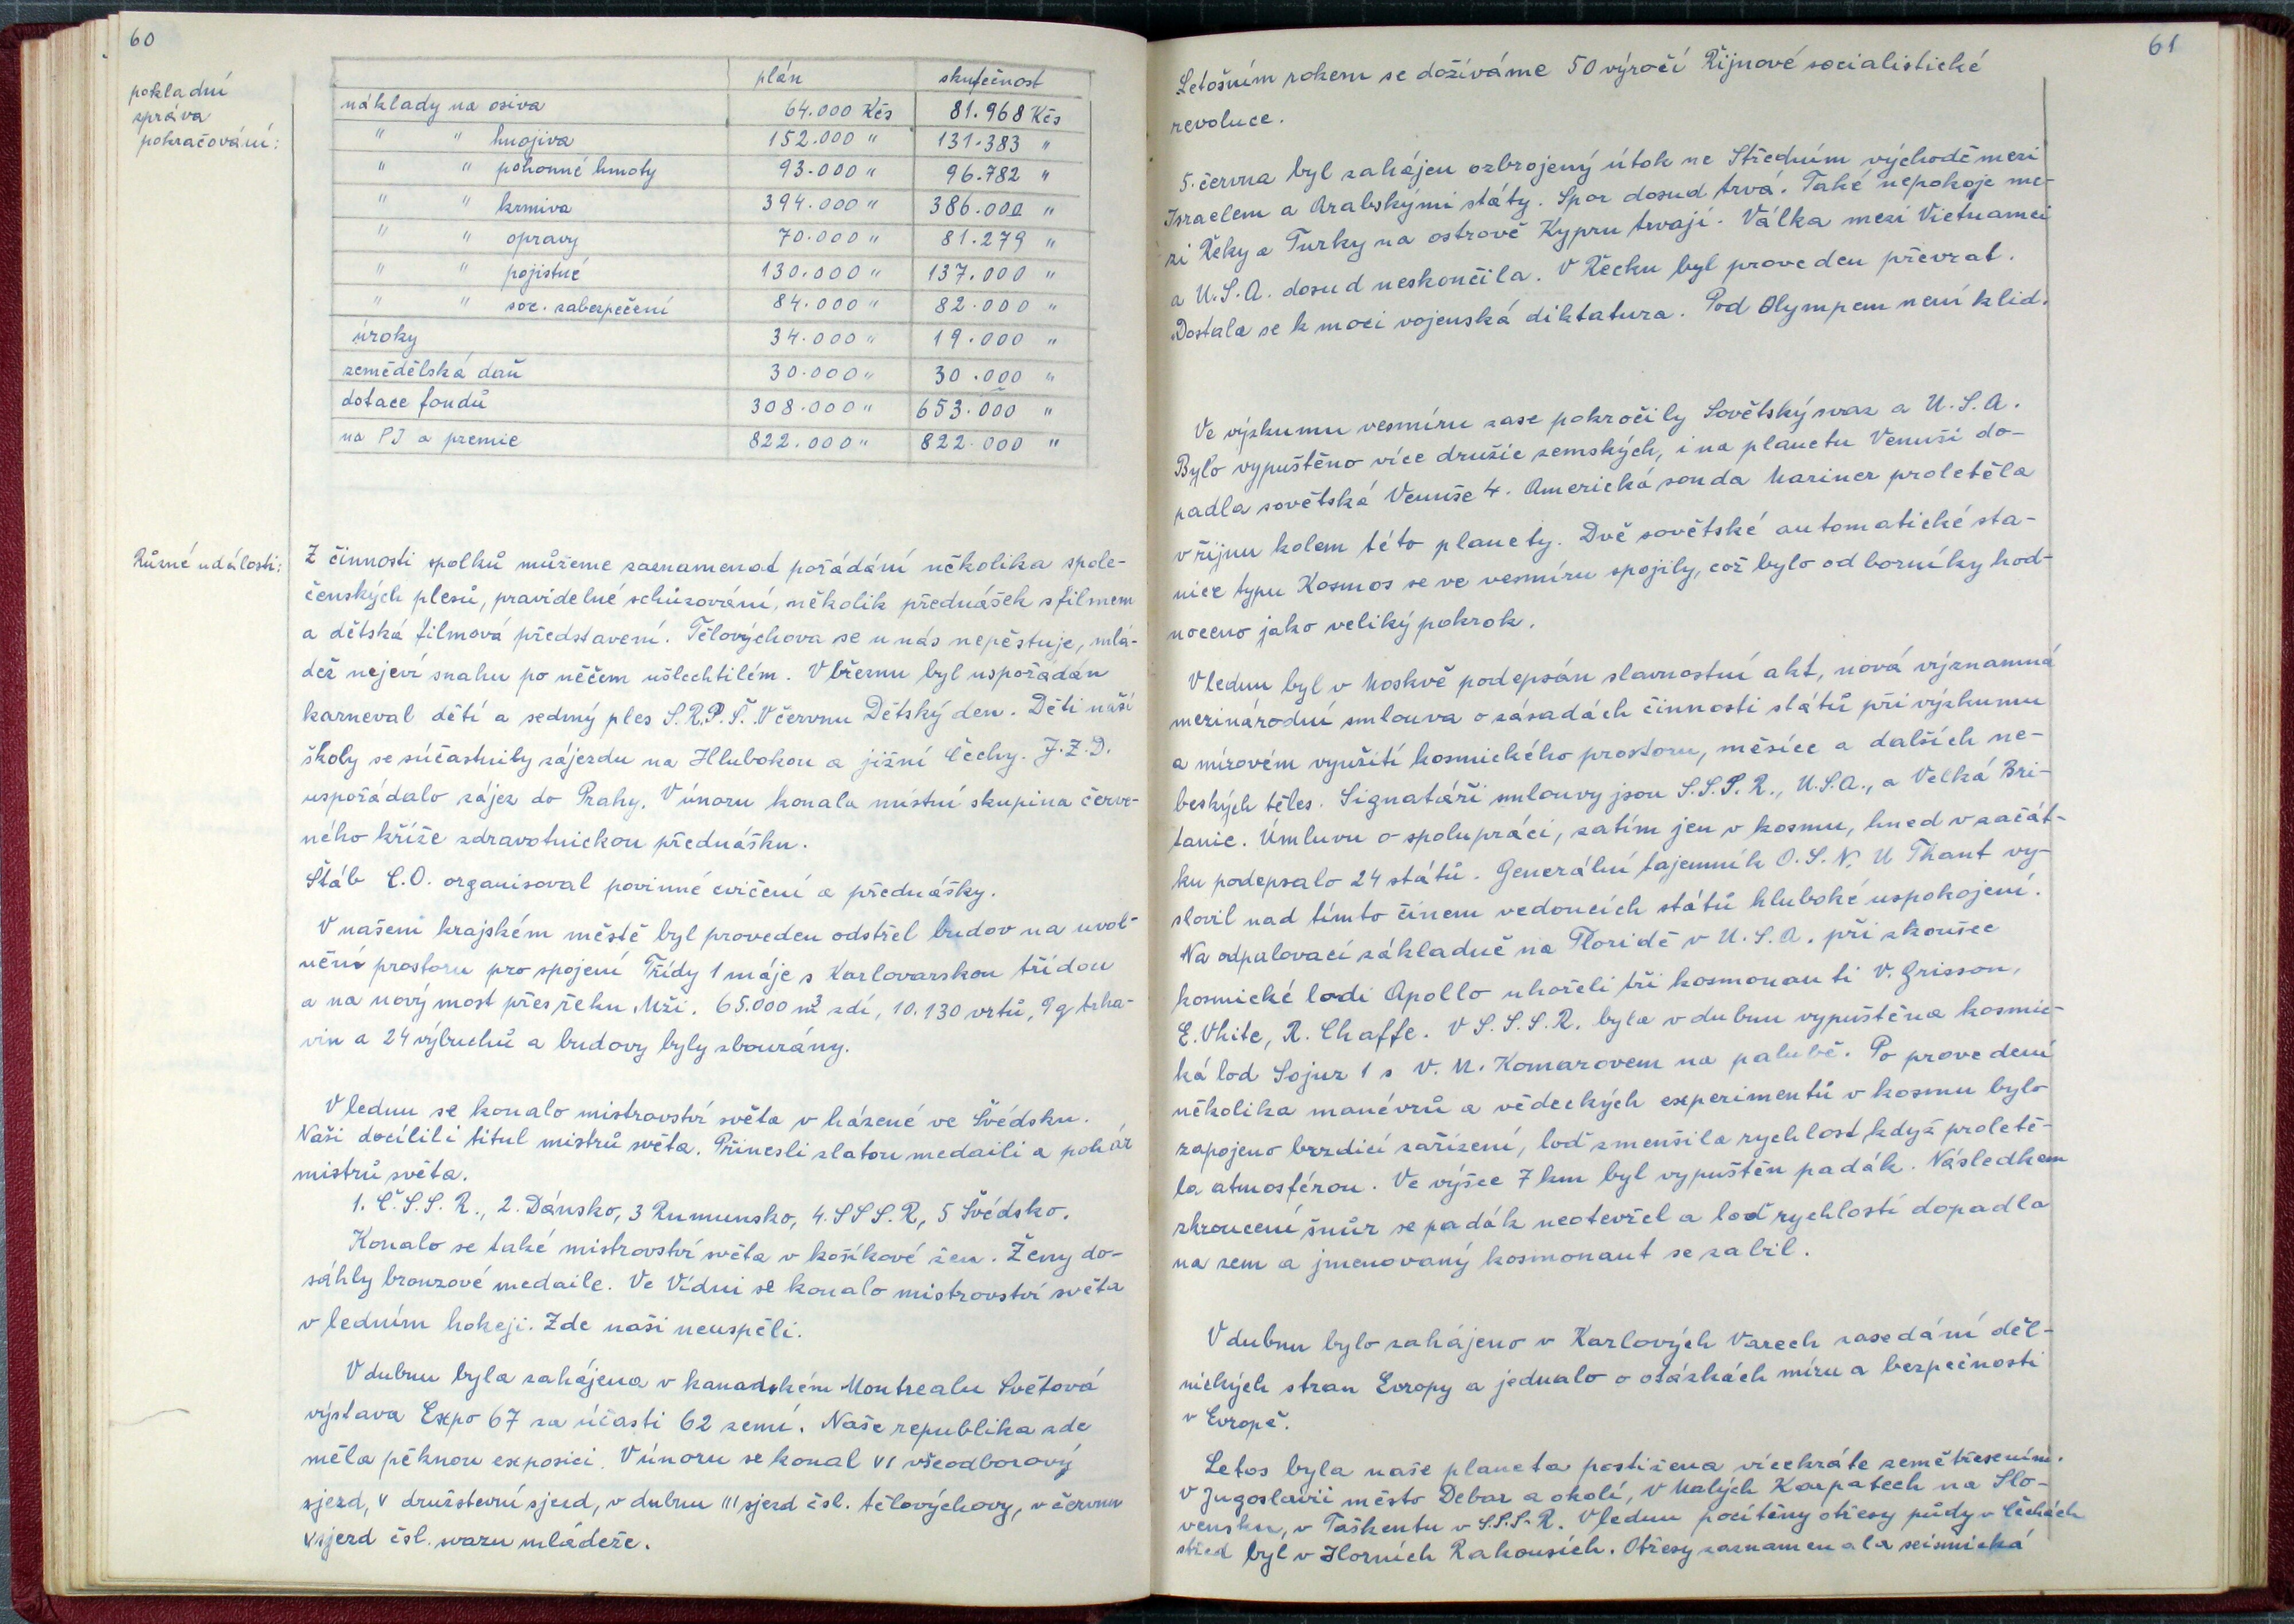 60
pokladní
zpráva
pokračování:
plán skutečnost
náklady na osiva 64.000 Kčs 81.968 Kčs
" " hnojiva 152.000 " 131.383 "
" " pohonné hmoty 93.000 " 96.782 "
" " krmiva 394.000 " 386.000 "
" " opravy 70.000 " 81.279 "
" " pojistné 130.000 " 137.000 "
" " soc. zabezpečení 84.000 " 82.000 "
úroky 34.000 " 19.000 "
zemědělská daň 30.000 " 30.000 "
dotace fondů 308.000 " 653.000 "
na PJ a premie 822.000 " 822.000 "
Různé události:
Z činnosti spolků můžeme zaznamenat pořádání několika spole-
čenských plesů, pravidelné schůzování, několik přednášek s filmem
a dětská filmová představení. Tělovýchova se u nás nepěstuje, mlá-
dež nejeví snahu po něčem ušlechtilém. V březnu byl uspořádán
karneval dětí a sedmý ples S.R.P.Š. V červnu Dětský den. Děti naší
školy se súčastnily zájezdu na Hlubokou a jižní Čechy. J.Z.D.
uspořádalo zájez do Prahy. V únoru konala místní skupina červe-
ného kříže zdravotnickou přednášku.
Štáb C.O. organisoval povinné cvičení a přednášky.
V našem krajském městě byl proveden odstřel budov na uvol-
nění prostoru pro spojení Třídy 1 máje s Karlovarskou třídou
a na nový most přes řeku Mži. 65.000 m³ zdí, 10.130 vrtů, 9 q trha-
vin a 24 výbuchů a budovy byly zbourány.
V lednu se konalo mistrovství světa v házené ve Švédsku.
Naši docílili titul mistrů světa. Přinesli zlatou medaili a pohár
mistrů světa.
1. Č.S.S.R., 2. Dánsko, 3 Rumunsko, 4. SSS.R, 5 Švédsko.
Konalo se také mistrovství světa v košíkové žen. Ženy do-
sáhly bronzové medaile. Ve Vídni se konalo mistrovství světa
v ledním hokeji. Zde naši neuspěli.
V dubnu byla zahájena v kanadském Montrealu Světová
výstava Expo 67 za účasti 62 zemí. Naše republika zde
měla pěknou exposici. V únoru se konal VI všeodborový
sjezd, V družstevní sjezd, v dubnu III sjezd čsl. tělovýchovy, v červnu
V sjezd čsl. svazu mládeže.
61
Letošním rokem se dožíváme 50 výročí Říjnové socialistické
revoluce.
5. června byl zahájen ozbrojený útok ne Středním východě mezi
Israelem a Arabskými státy. Spor dosud trvá. Také nepokoje me-
zi Řeky a Turky na ostrově Kypru trvají. Válka mezi Vietnamci
a U.S.A. dosud neskončila. V Řecku byl proveden převrat.
Dostala se k moci vojenská diktatura. Pod Olympem není klid.
Ve výzkumu vesmíru zase pokročily Sovětský svaz a U.S.A.
Bylo vypuštěno více družic zemských, i na planetu Venuši do-
padla sovětská Venuše 4. Americká sonda Mariner proletěla
v říjnu kolem této planety. Dvě sovětské automatické sta-
nice typu Kosmos se ve vesmíru spojily, což bylo odborníky hod-
noceno jako veliký pokrok.
V lednu byl v Moskvě podepsán slavnostní akt, nová významná
mezinárodní smlouva o zásadách činnosti států při výzkumu
a mírovém využití kosmického prostoru, měsíce a dalších ne-
beských těles. Signatáři smlouvy jsou S.S.S.R., U.S.A., a Velká Bri-
tanie. Úmluvu o spolupráci, zatím jen v kosmu, hned v začát-
ku podepsalo 24 států. Generální tajemník O.S.N. U Thant vy-
slovil nad tímto činem vedoucích států hluboké uspokojení.
Na odpalovací základně na Floridě v U.S.A. při zkoušce
kosmické lodi Apollo uhořeli tři kosmonauti V. Grisson,
E. Vhite, R. Chaffe. V S.S.S.R. byla v dubnu vypuštěna kosmic-
ká loď Sojuz 1 s V. M. Komarovem na palubě. Po provedení
několika manévrů a vědeckých experimentů v kosmu bylo
zapojeno brzdící zařízení, loď zmenšila rychlost, když proletě-
la atmosférou. Ve výšce 7 km byl vypuštěn padák. Následkem
zkroucení šnůr se padák neotevřel a loď rychlostí dopadla
na zem a jmenovaný kosmonaut se zabil.
V dubnu bylo zahájeno v Karlových Varech zasedání děl-
nických stran Evropy a jednalo o otázkách míru a bezpečnosti
v Evropě.
Letos byla naše planeta postižena vícekráte zemětřesením.
V Jugoslavii město Debar a okolí, v Malých Karpatech na Slo-
vensku, v Taškentu v S.S.S.R. V lednu pocítěny otřesy půdy v Čechách
střed byl v Horních Rakousích. Otřesy zaznamenala seismická